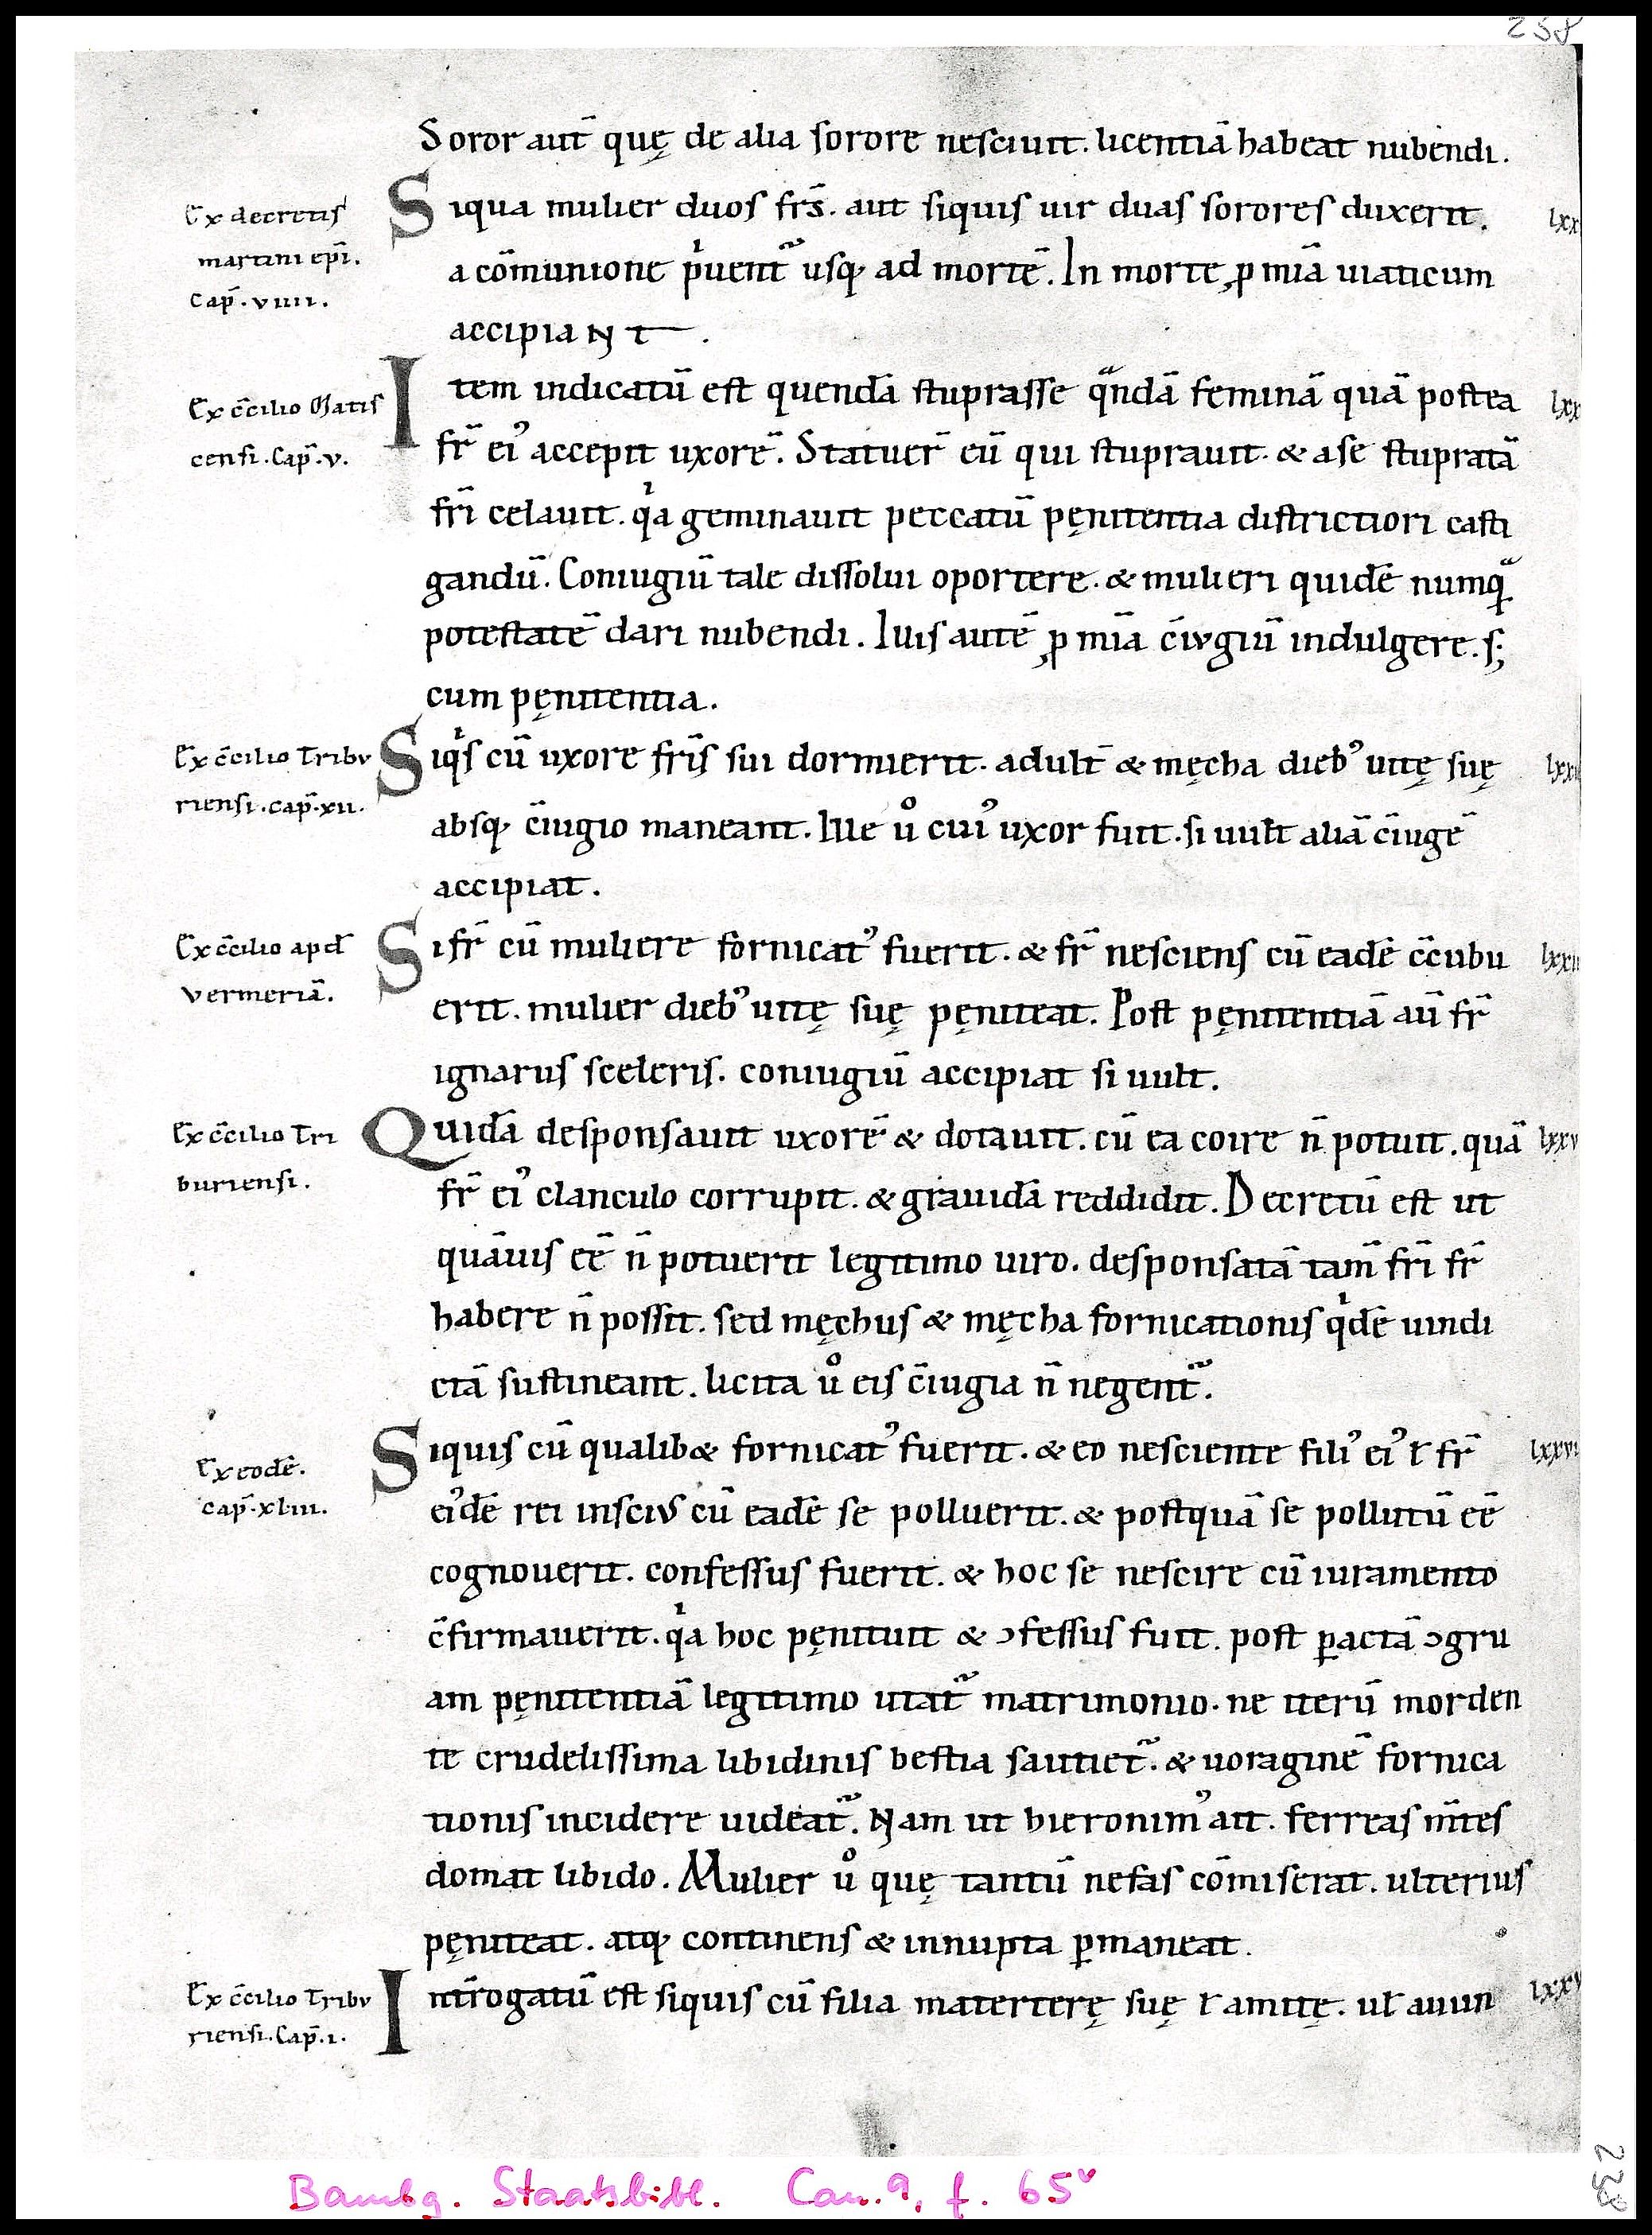 258
Soror aut̄ quę de alia sorore nesciuit. licentiā habeat nubendi.
Ex decretis
martini epi̅.
Cap̄. viiii.
Siqua mulier duos fr̄s. aut siquis uir duas sorores duxerit.
lxx
a cōmunione pͥuent᷑ usq; ad mortē. In morte ꝓ mīa uiaticum
accipiant.
Ex c̄cilio Matis
censi. Cap̄. v.
Item indicatū est quendā stuprasse qͣndā feminā quā postea
lxx
fr̄ ei᾽ accepit uxorē. Statuer̄ eū qui stuprauit. & a se stupratā
fri̅ celauit. qͥa geminauit peccatū pęnitentia districtiori casti
gandū. Coniugiū tale dissolui oportere. & mulieri quidē numqͣ
potestatē dari nubendi. Illis autē ꝓ mīa c̄iugiū indulgere. s;
cum pęnitentia.
Ex c̄cilio Tribu
riensi. cap̄. xii.
Siqͥs cū uxore fri̅s sui dormierit. adult̄ & męcha dieb᾽ uitę suę
lxxi
absq; c̄iugio maneant. Ille uͦ cui᾽ uxor fuit. si uult aliā c̄iugē
accipiat.
Ex c̄cilio apd̄
vermeriā.
Si fr̄ cū muliere fornicat᾽ fuerit. & fr̄ nesciens cū eadē c̄cubu
lxxii
erit. mulier dieb᾽ uitę suę pęniteat. Post pęnitentiā aū fr̄
ignarus sceleris. coniugiū accipiat si uult.
Ex c̄cilio Tri
buriensi.
Quidā desponsauit uxorē & dotauit. cū ea coire n̄ potuit. quā
lxxv
fr̄ ei᾽ clanculo corrupit. & grauidā reddidit. Decretū est ut
quāuis eē n̄ potuerit legitimo uiro. desponsatā tam̄ fri̅ fr̄
habere n̄ possit. sed męchus & męcha fornicationis qͥdē uindi
ctā sustineant. licita uͦ eis c̄iugia n̄ negent᷑.
Ex eodē.
cap̄. xliii.
Siquis cū qualib& fornicat᾽ fuerit. & eo nesciente fili᾽ ei᾽ ł fr̄
lxxvi
ei᾽dē rei inscius cū eadē se polluerit. & postquā se pollutū eē
cognouerit. confessus fuerit. & hoc se nescire cū iuramento
c̄firmauerit. qͥa hoc pęnituit & ɔfessus fuit. post ꝑactā ɔgru
am pęnitentiā legitimo utat᷑ matrimonio. ne iterū morden
te crudelissima libidinis bestia sautiet᷑. & uoraginē fornica
tionis incidere uideat᷑. Nam ut hieronim᾽ ait. ferreas m̄tes
domat libido. Mulier uͦ quę tantū nefas cōmiserat. ulterius
pęniteat. atq; continens & innupta ꝑmaneat.
Ex c̄cilio Tribu
riensi. Cap̄. i.
Int̄rogatū est siquis cū filia materterę suę ł amitę. uł auun
lxxv
Bambg. Staatsbibl. Can. 9, f. 65ᵛ
238